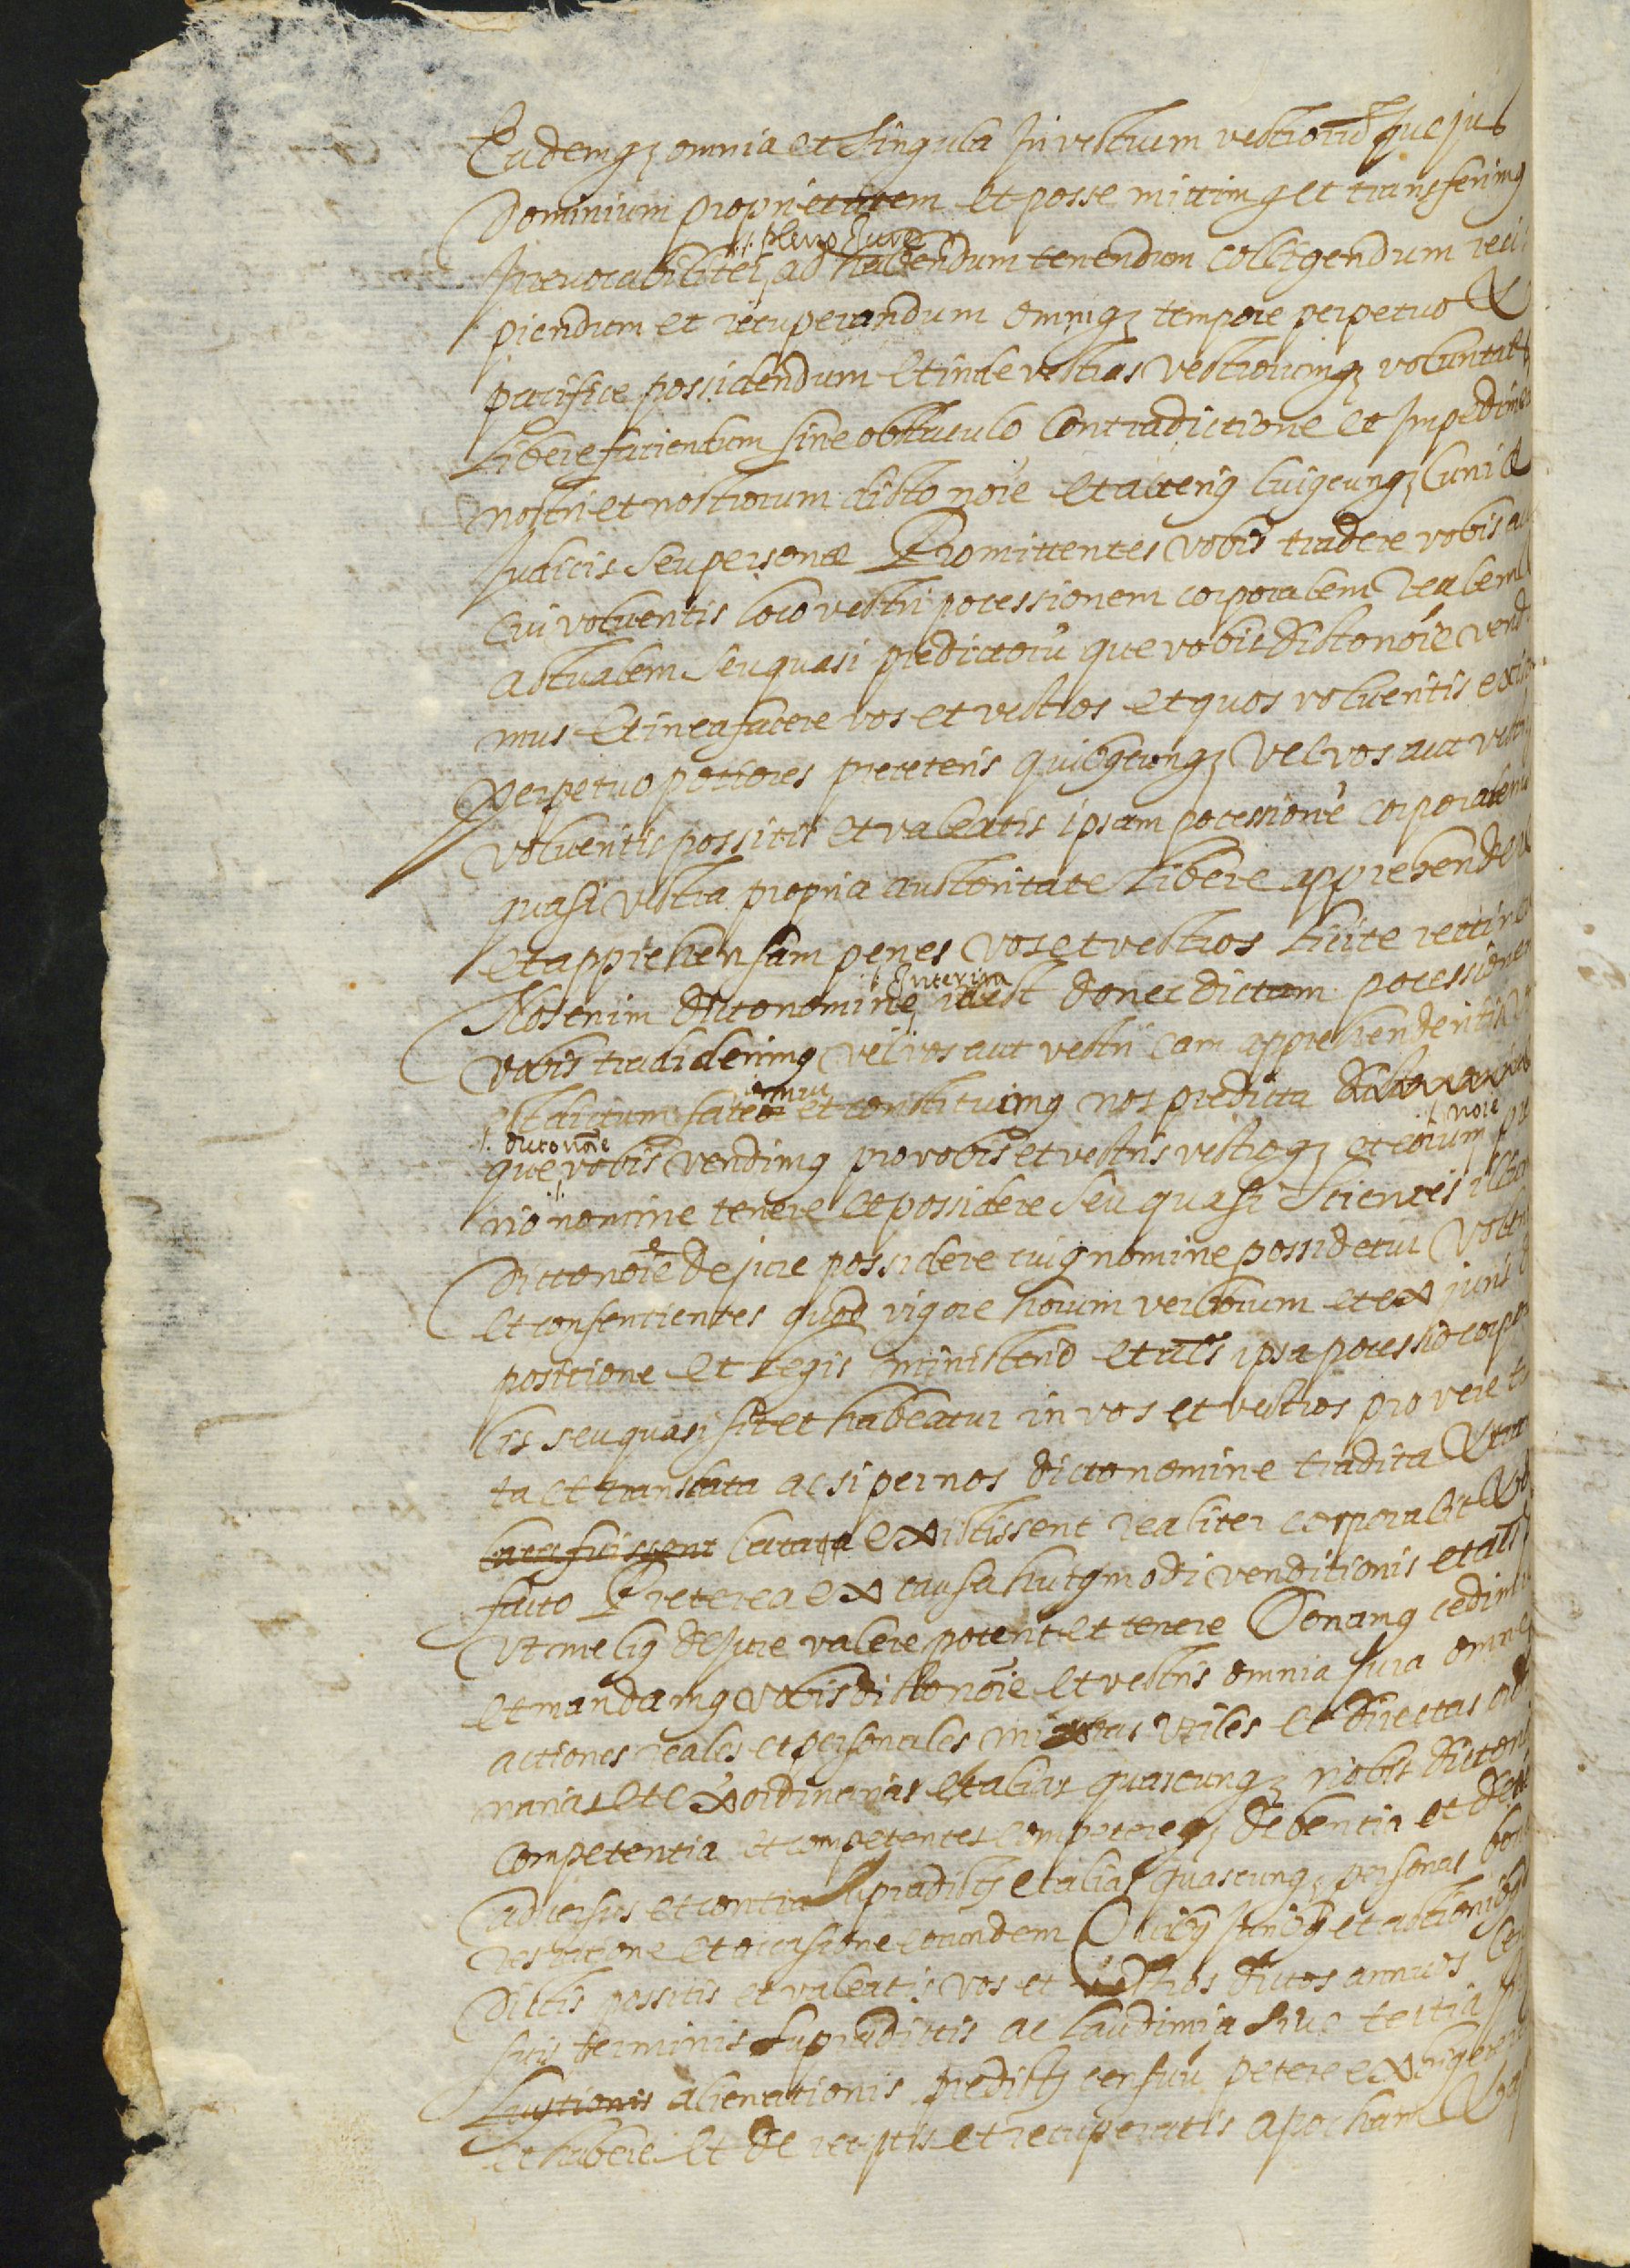 Eademqz omnia et singula In vestrum vestrorūqz que jus
Dominium proprietatem et posse mittimq et transferimq
·/· pleno Jure
Irrevocabiliter ad habendum tenendum colligendum reci
piendum et recuperandum omniqz tempore perpetuo &
pacifice possidendum et inde vestras vestrorumqz voluntates
Libere faciendum sine obstaculo Contradictione et Impedime
nostri et nostrorum dicto noīe et alteriq cuiqcunqz Curie
Judicis seu persone Promittentes vobis tradere vobis aut
Cui volueritis loco vestri pocessionem corporalem realem
actualem seu quasi predictorū que vobis dicto noīe vendi
mus Et in ea facere vos et vestros et quos volueritis exis
perpetuo potiores preteteris quibqcunqz Vel vos aut vestri
volueritis possitis et valeatis ipsam pocessionē corporalem
quasi vestra propria auctoritate libere apprehendere
et apprehensam penes vos et vestros licite retinere
·/· Interim
Nos enim dicto nomine, idest donec dictam pocessionem
vobis tradiderimq vel vos aut vestri eam apprehenderitis
emur
est dictum fateor et constituimq nos predicta
·/· dicto noīe
·/· noīe
que vobis vendimq pro vobis et vestris vestroqz et eorum pre
rio nomine tenere et possidere seu quasi Scientes illum
Dicto noīe de jure possidere cuiq nomine possidetur Volentes
et consentientes quod vigore horum verborum et ex juris
positione et Legis ministerio et als ipsa pocessio corpora
lis seu quasi sit et habeatur in vos et vestros pro vere
ta et translata ac si per nos dicto nomine tradita &
lata fuissent Certata existissent realiter corporalit &
facto Preterea ex causa huiqmodi venditionis et als
Vt meliq de jure valere poterit et tenere Donamq cedimq
et mandamq vobis dicto noīe et vestris omnia Jura omnes
actiones reales et personales mixtas vtiles et directas
narias et exordinarias et alias quascunqz nobis dicto
competentia et competentes competereqz debentia et
adversus et contra supradictqz et alias quascunqz personas
res ratione et occasione eorundem Quibq juribq et actionibq
dictis possitis et valeatis vos et vestros dictos annuos
suis terminis supradictis ac laudimia sive tertia
Luytionis alienationis predictqz censuu petere exhigere
et habere et de receptis et recuperatis apocham &